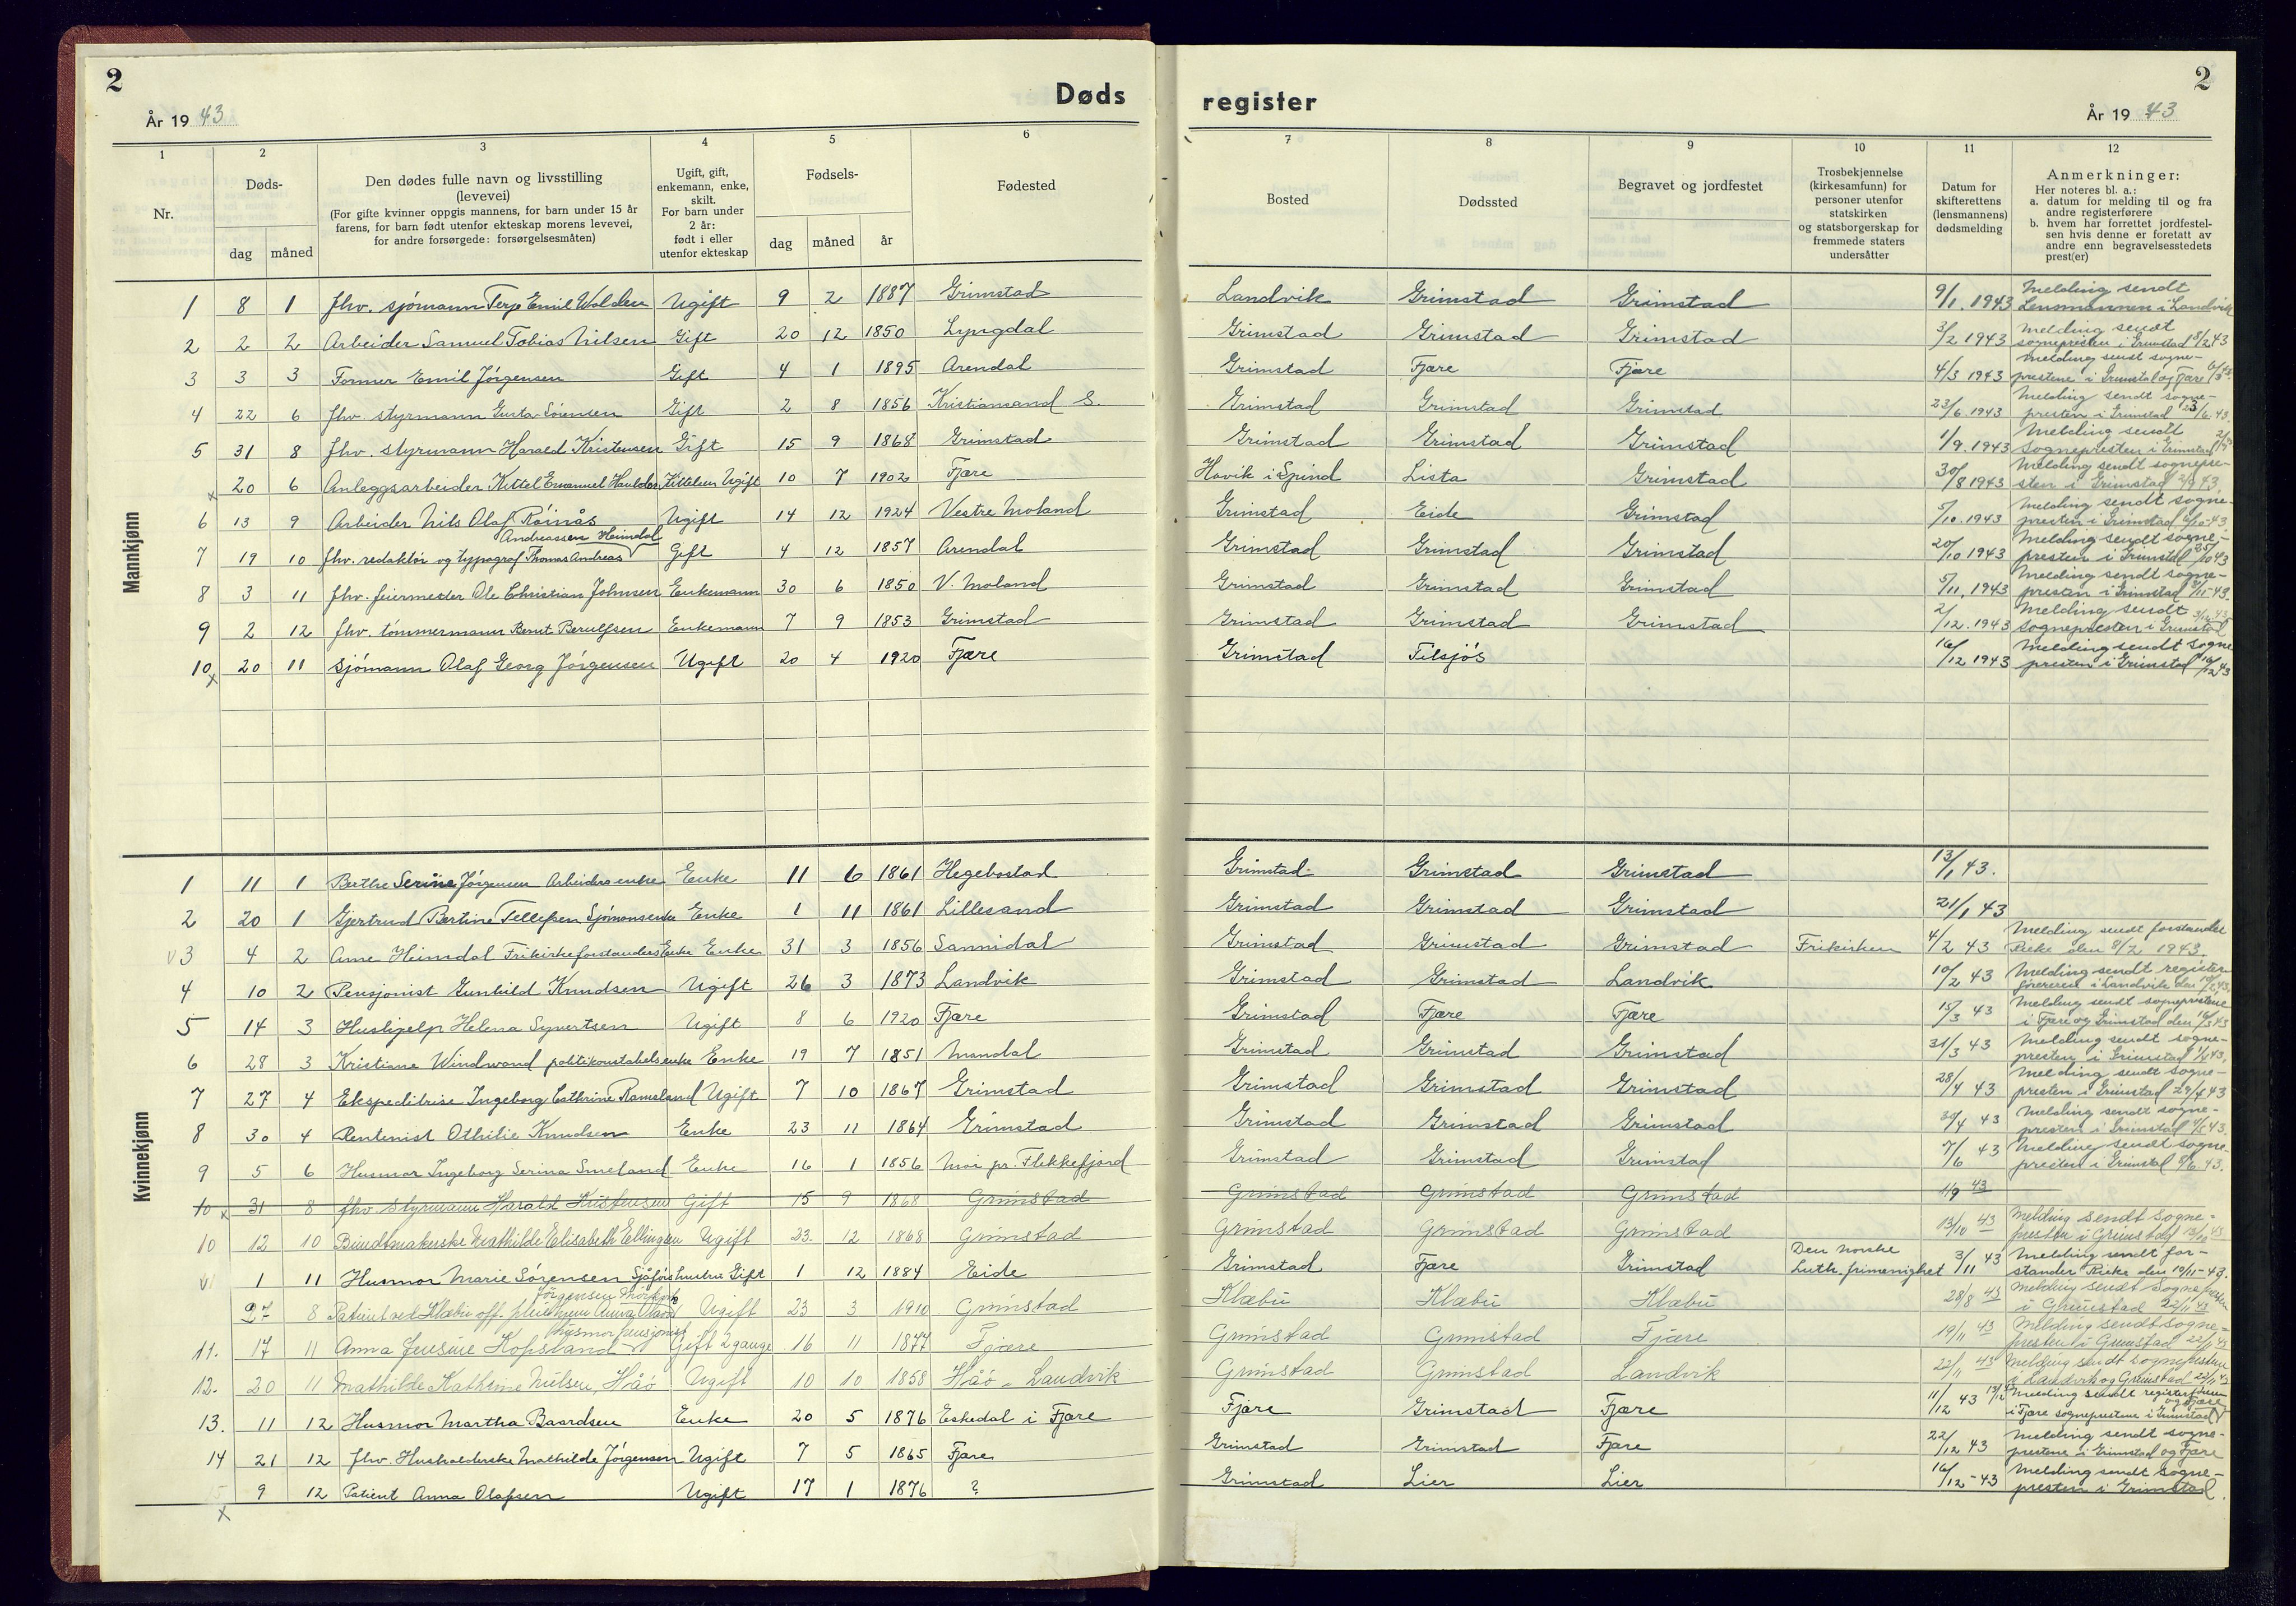 2
Døds
År 1943
1
2
3
4
5
6
Nr.
Døds-
dag måned
Den dødes fulle navn og livsstilling
(levevei)
(For gifte kvinner oppgis mannens, for barn under 15 år
farens, for barn født utenfor ekteskap morens levevei,
for andre forsørgede: forsørgelsesmåten)
Ugift, gift,
enkemann, enke,
skilt.
For barn under
2 år:
født i eller
utenfor ekteskap
Fødsels-
dag måned år
Fødested
Mannkjønn
1 8 1 fhv. sjömann Terje Emil Walden Ugift 9 2 1887 Grimstad
2 2 2 Arbeider Samuel Tobias Nilsen Gift 20 12 1850 Lyngdal
3 3 3 Former Emil Jörgensen Gift 4 1 1895 Arendal
4 22 6 fhv. styrmann Gusta Sörensen Gift 2 8 1856 Kristiansand S.
5 31 8 fhv. styrmann Harald Kristensen Gift 15 9 1868 Grimstad
x 20 6 Anleggsarbeider Kittel Emanuel Kittelsen Ugift 10 7 1902 Fjære
6 13 9 Arbeider Nils Olaf Röinås Ugift 14 12 1924 Vestre Moland
Andreassen Heimdal
7 19 10 fhv. redaktör og typograf Thomas Andreas Gift 4 12 1857 Arendal
8 3 11 fhv. feiermester Ole Christian Johnsen Enkemann 30 6 1850 V. Moland
9 2 12 fhv. tömmermann Bernt Berulfsen Enkemann 7 9 1853 Grimstad
10 x 20 11 Sjömann Olaf Georg Jörgensen Ugift 20 4 1920 Fjære
Kvinnekjønn
1 11 1 Berthe Serine Jörgensen Arbeiders enke Enke 11 6 1861 Hegebostad
2 20 1 Gjertrud Bertine Tellefsen Sjömonsenke Enke 1 11 1861 Lillesand
v3 4 2 Ane Heimdal Frikirkeforstanders Enke Enke 31 3 1856 Sannidal
4 10 2 Pensjonist Gunhild Knudsen Ugift 26 3 1873 Landvik
5 14 3 Hushjelp Helena Syvertsen Ugift 8 6 1920 Fjære
6 28 3 Kristiane Windwand politikonstabels enke Enke 19 7 1851 Mandal
7 27 4 Ekspeditrise Ingeborg Cathrine Ramsland Ugift 7 10 1867 Grimstad
8 30 4 Rentenist Othilie Knudsen Enke 23 11 1864 Grimstad
9 5 6 Husmor Ingeborg Serina Smeland Enke 16 1 1856 Moi pr. Flekkefjord
10 x 31 8 fhv styrmann Harald Kristensen Gift 15 9 1868 Grimstad
10 12 10 Bundtmakerske Mathilde Elisabeth Ellingsen Ugift 23. 12 1868 Grimstad
v 1 11 Husmor Marie Sörensen Sjåförs hustru Gift 1 12 1884 Eide
Jörgensen
27 8 Patient ved Klæbu off. pleiehjem Anna Ugift 23 3 1910 Grimstad
husmor pensjonist
11. 17 11 Anna Jensine Kopsland Gift 2 gange 16 11 1877 Fjære
12. 20 11 Mathilde Kathrine Nilsen, Håö Ugift 10 10 1858 Håö - Landvik
13. 11 12 Husmor Martha Baardsen Enke 20 5 1876 Eskedal i Fjære
14 21 12 fhv. Husholderske Mathilde Jörgensen Ugift 7 5 1865 Fjære
x 9 12 Patient Anna Olafsen Ugift 17 1 1876 ?
2
register
År 1943
7
8
9
10
11
12
Bosted
Dødssted
Begravet og jordfestet
Trosbekjennelse
(kirkesamfunn) for
personer utenfor
statskirken
og statsborgerskap for
fremmede staters
undersåtter
Datum for
skifterettens
(lensmannens)
dødsmelding
Anmerkninger:
Her noteres bl. a.:
a. datum for melding til og fra
andre registerførere
b. hvem har forrettet jordfestel-
sen hvis denne er foretatt av
andre enn begravelsesstedets
prest(er)
Landvik Grimstad Grimstad 9/1. 1943 Melding sendt
Lensmannen i Landvik
Grimstad Grimstad Grimstad 3/2 1943 Melding sendt
sognepresten i Grimstad 8/2 43
Grimstad Fjære Fjære 4/3 1943 Melding sendt sogne-
prestene i Grimstad og Fjære
Grimstad Grimstad Grimstad 23/6. 1943 Melding sendt sogne-
presten i Grimstad 23/6 43
Grimstad Grimstad Grimstad 1/9. 1943 Melding sendt
sognepresten i Grimstad
Havik i Spind Lista Grimstad 30/8 1943 Melding sendt sognepre-
sten i Grimstad 2/9 43.
Grimstad Eide Grimstad 5/10. 1943 Melding sendt sogne-
presten i Grimstad 6/10-43
Grimstad Grimstad Grimstad 20/10 1943 Melding sendt sogne-
presten i Grimstad 43
Grimstad Grimstad Grimstad 5/11, 1943 Melding sendt sogne-
presten i Grimstad 43.
Grimstad Grimstad Grimstad 2/12. 1943 Melding sendt
sognepresten i Grimstad
Grimstad Tilsjös 16/12 1943 Melding sendt sogne
presten i Grimstad 16/12 43
Grimstad Grimstad Grimstad 13/1 43.
Grimstad Grimstad Grimstad 21/1 43
Grimstad Grimstad Grimstad Frikirken 4/2 43 Melding sendt forstander
Rieke den 8/2 1943.
Grimstad Grimstad Landvik 10/2 43 Melding sendt register-
föreren i Landvik den
Grimstad Fjære Fjære 15/3 43 Melding sendt sogneprestene
i Fjære og Grimstad den 16/3 43
Grimstad Grimstad Grimstad 31/3 43 Melding sendt sogne-
presten i Grimstad 43.
Grimstad Grimstad Grimstad 28/4 43 Melding sendt sogne-
presten i Grimstad 29/4 43
Grimstad Grimstad Grimstad 30/4 43 Melding sendt sogne-
presten i Grimstad 43
Grimstad Grimstad Grimstad 7/6 43 Melding sendt sogne-
presten i Grimstad 8/6 43.
Grimstad Grimstad Grimstad 1/9 43
Grimstad Grimstad Grimstad 13/10 43 Melding sendt sogne-
presten i Grimstad 13/10 43
Grimstad Fjære Grimstad Den norske
Luth. frimenighet 3/11 43 Melding sendt for-
stander Rieke den 10/11-43.
Klæbu Klæbu Klæbu 28/8 43 Melding sendt Sognepresten
i Grimstad 22/11 43
Grimstad Grimstad Fjære 19/11 43 Melding sendt sogne-
presten i Grimstad 22/11 43
Grimstad Grimstad Landvik 22/11 43 Melding sendt sogneprestene
i Landvik og Grimstad 22/11 43
Fjære Grimstad Fjære 11/12 43 Melding sendt registerföreren
i Fjære sogneprestene i Grimstad og Fjære
Grimstad Grimstad Fjære 22/12 43 Melding sendt sogne-
prestene i Grimstad og Fjære
Grimstad Lier Lier 16/12-43 Melding sendt sogne-
presten i Grimstad.